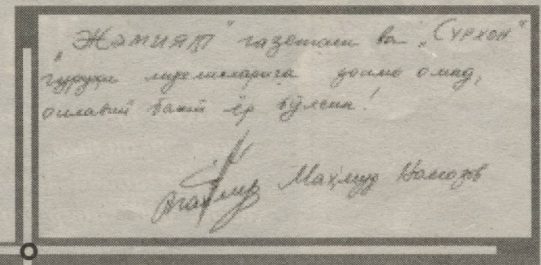 "Жамият" газетаси ва "Сурхон"
гуруҳи мухлисларига доимо омад,
оилавий бахт ёр бўлсин!
Маҳмуд Номозов